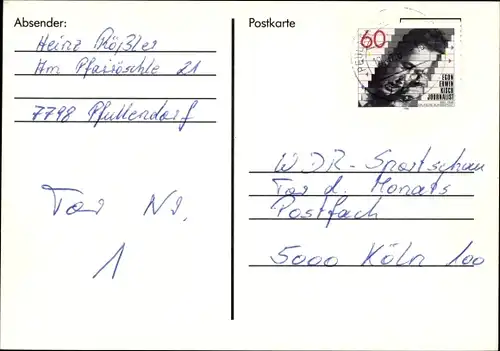 Absender:
Heinz Rößler
Am Pfairöschle 21
7798 Pfullendorf
Tor Nr.
1
Postkarte
60
EGON
ERWIN
KISCH
JOURNALIST
WDR-Sportschau
Tor d. Monats
Postfach
5000 Köln 100